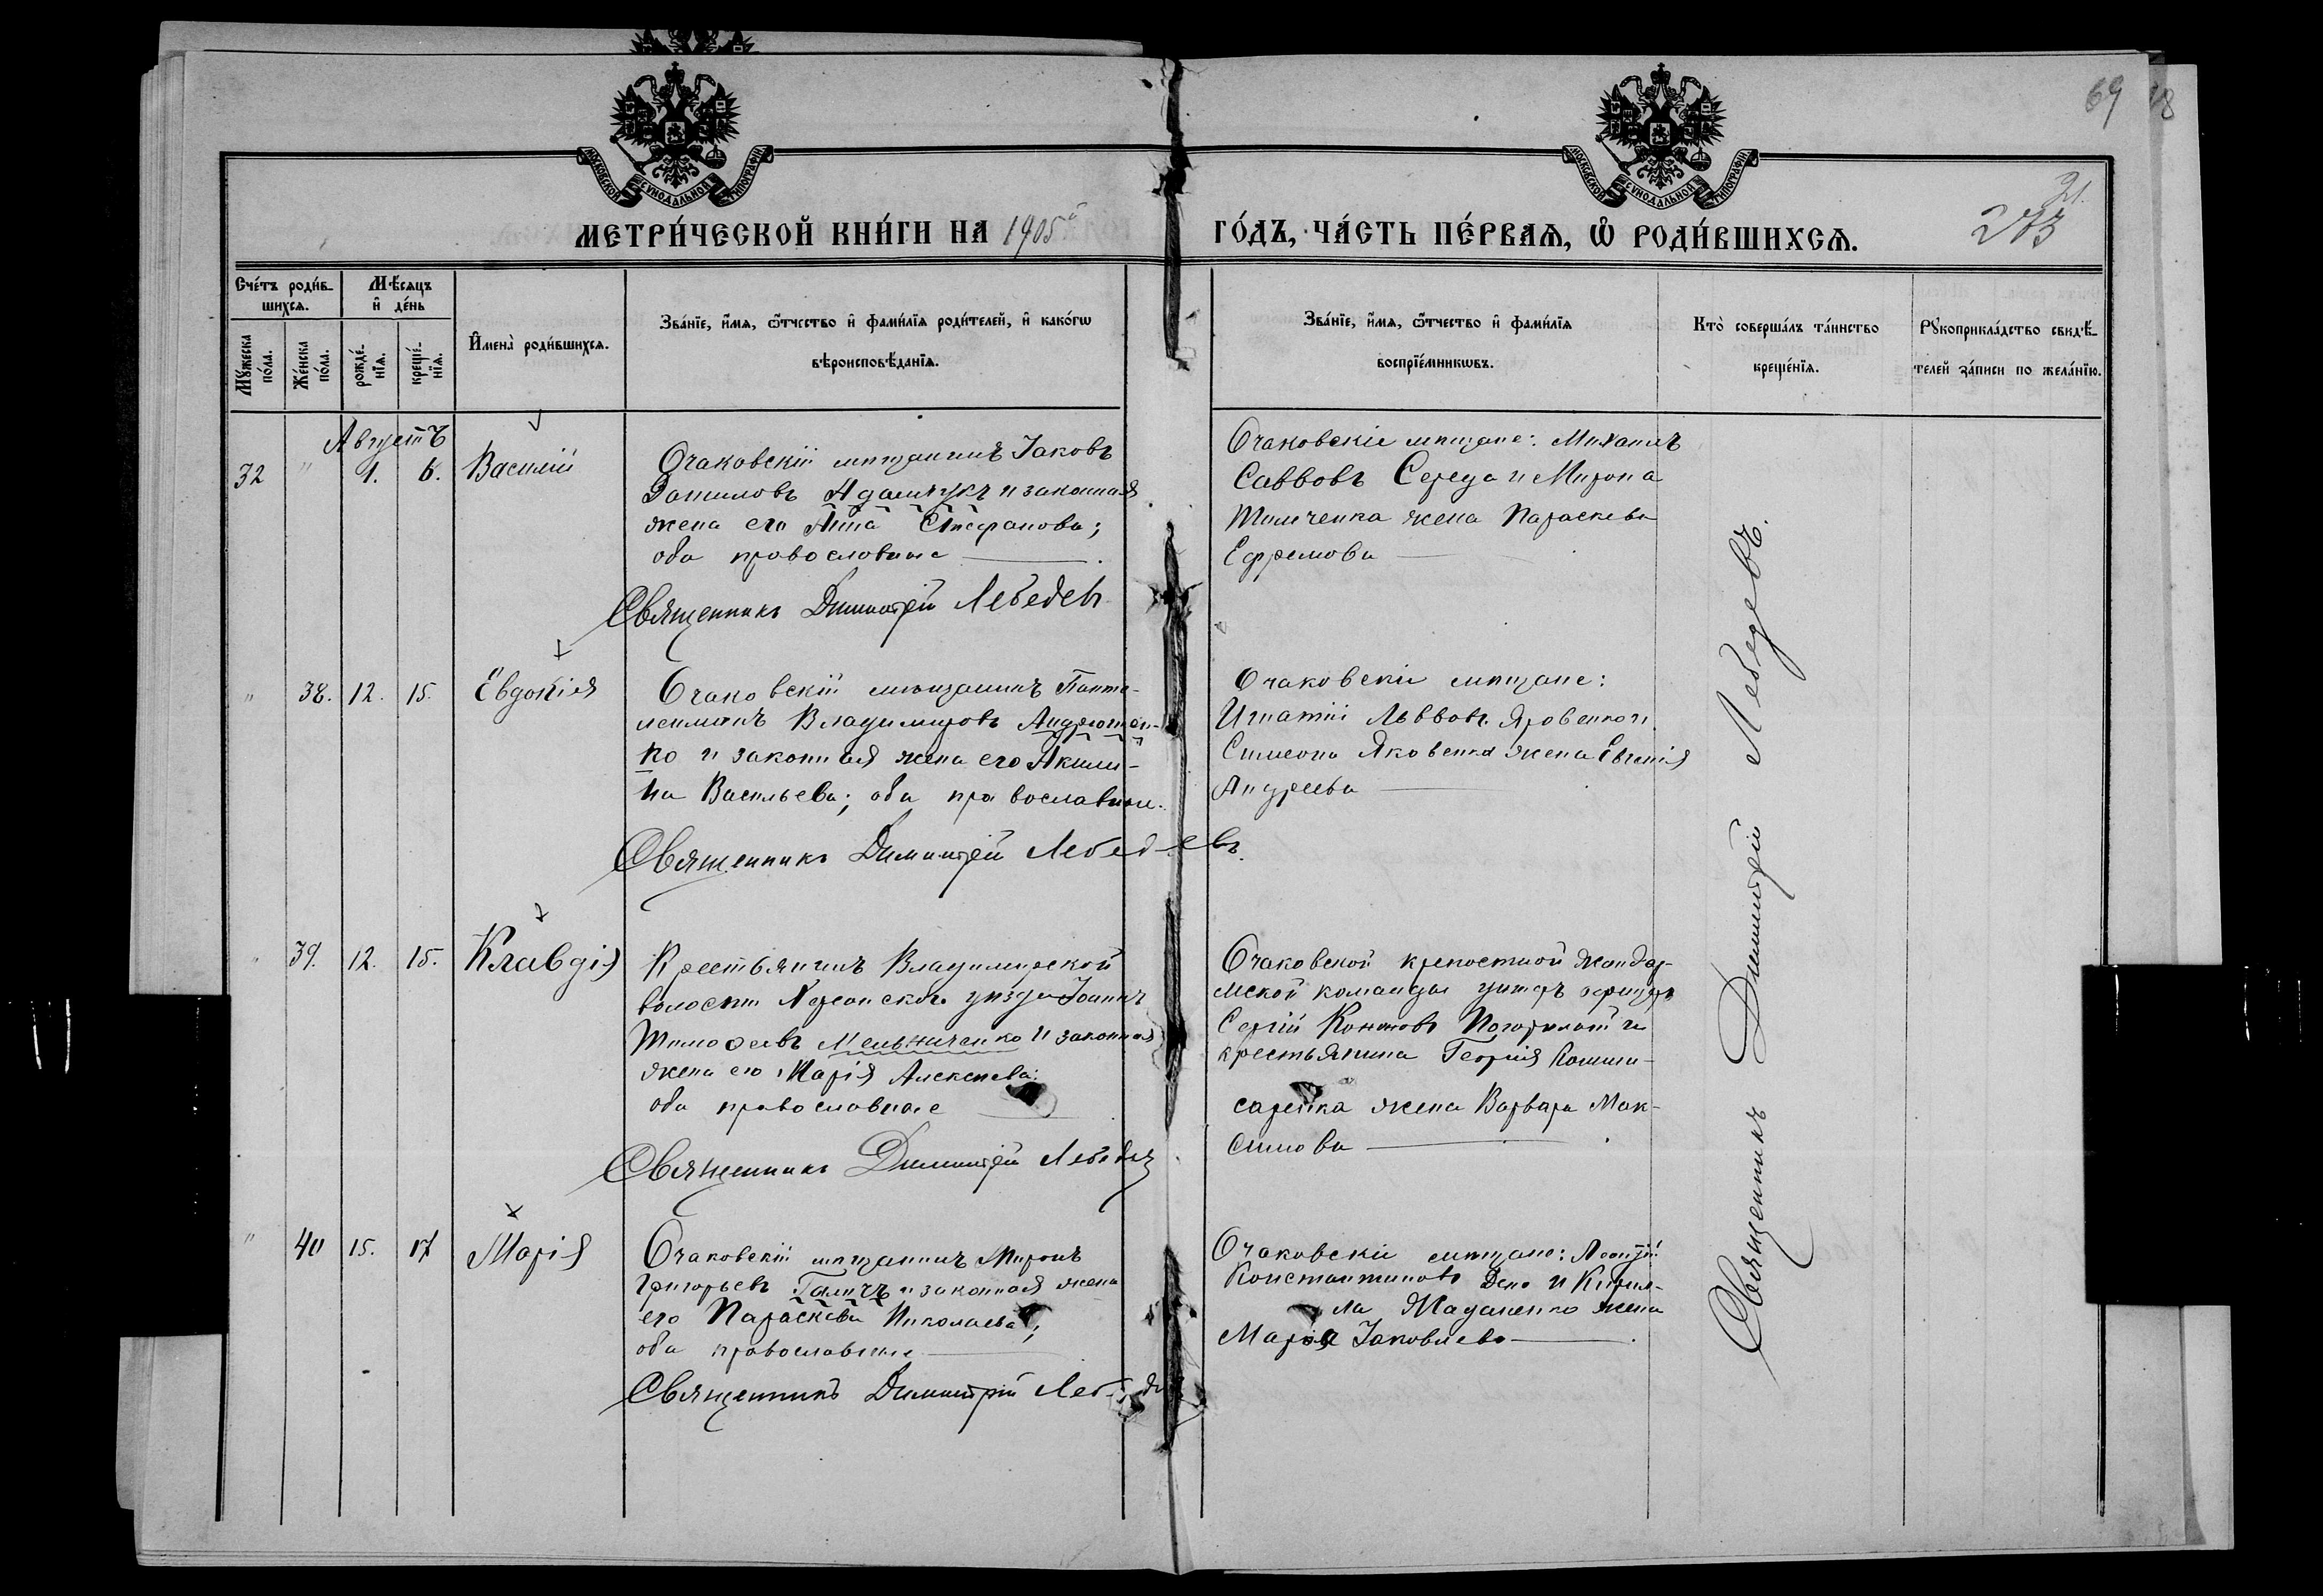 69 18
МОСКОВСКОЙ СѴНОДАЛЬНОЙ ТИПОГРАФІИ
МОСКОВСКОЙ СѴНОДАЛЬНОЙ ТИПОГРАФІИ
МЕТРИ́ЧЕСКОЙ КНИ́ГИ НА 1905й ГО́ДЪ, ЧА́СТЬ ПЕ́РВАѦ, Ѡ҆ РОДИ́ВШИХСѦ.
31.
Сче́тъ роди́в-
шихсѧ.
Мѣ́сѧцъ
и҆ де́нь
Мꙋ́жеска по́ла.
Же́нска по́ла.
рожде́-
нїѧ.
креще́-
нїѧ.
И҆мена̀ роди́вшихсѧ.
Зва́нїе, и҆́мѧ, ѻ҆́тчество и҆ фами́лїѧ роди́телей, и҆ како́гѡ
вѣроисповѣ́данїѧ.
Зва́нїе, и҆́мѧ, ѻ҆́тчество и҆ фами́лїѧ
воспрїе́мникѡвъ.
Кто̀ соверша́лъ та́инство
креще́нїѧ.
Рꙋкоприкла́дство свидѣ́-
телей за́писи по жела́нїю.
Августъ
32 " 1. 6. Василій
Очаковскій мѣщанинъ Іаковъ
Даниловъ Адамчукъ и законная
жена его Анна Стефанова;
оба православные
Священникъ Димитрій Лебедевъ
Очаковскіе мѣщане: Михаилъ
Саввовъ Середа и Мирона
Тимченка жена Параскева
Ефремова
" 38. 12. 15. Евдокія
Очаковскій мѣщанинъ Панте-
леимонъ Владимировъ Андрющен-
ко и законная жена его Акили-
на Васильева; оба православные.
Священникъ Димитрій Лебедевъ.
Очаковскіе мѣщане:
Игнатій Львовъ Яровенко и
Симеона Яковенка жена Евгенія
Андреева
" 39. 12. 15. Клавдія
Крестьянинъ Владимирской
волости Херсонскаго уѣзда Іоаннъ
Тимофеевъ Мельниченко и законная
жена его Марія Алексѣева;
оба православные
Священникъ Димитрій Лебедевъ
Очаковской крепостной жандар-
мской команды унтеръ офицеръ
Сергій Кононовъ и
крестьянина Георгія Комми-
саренка жена Варвара Мак-
симова
" 40 15. 17 Марія
Очаковскій мѣщанинъ Миронъ
Григорьевъ Галичъ и законная жена
его Параскева Николаева;
оба православные
Священникъ Димитрій Лебедевъ
Очаковскіе мѣщане: Леонтій
Константиновъ и Кирил-
ла жена
Марія Іаковлева
Священникъ Димитрій Лебедевъ.